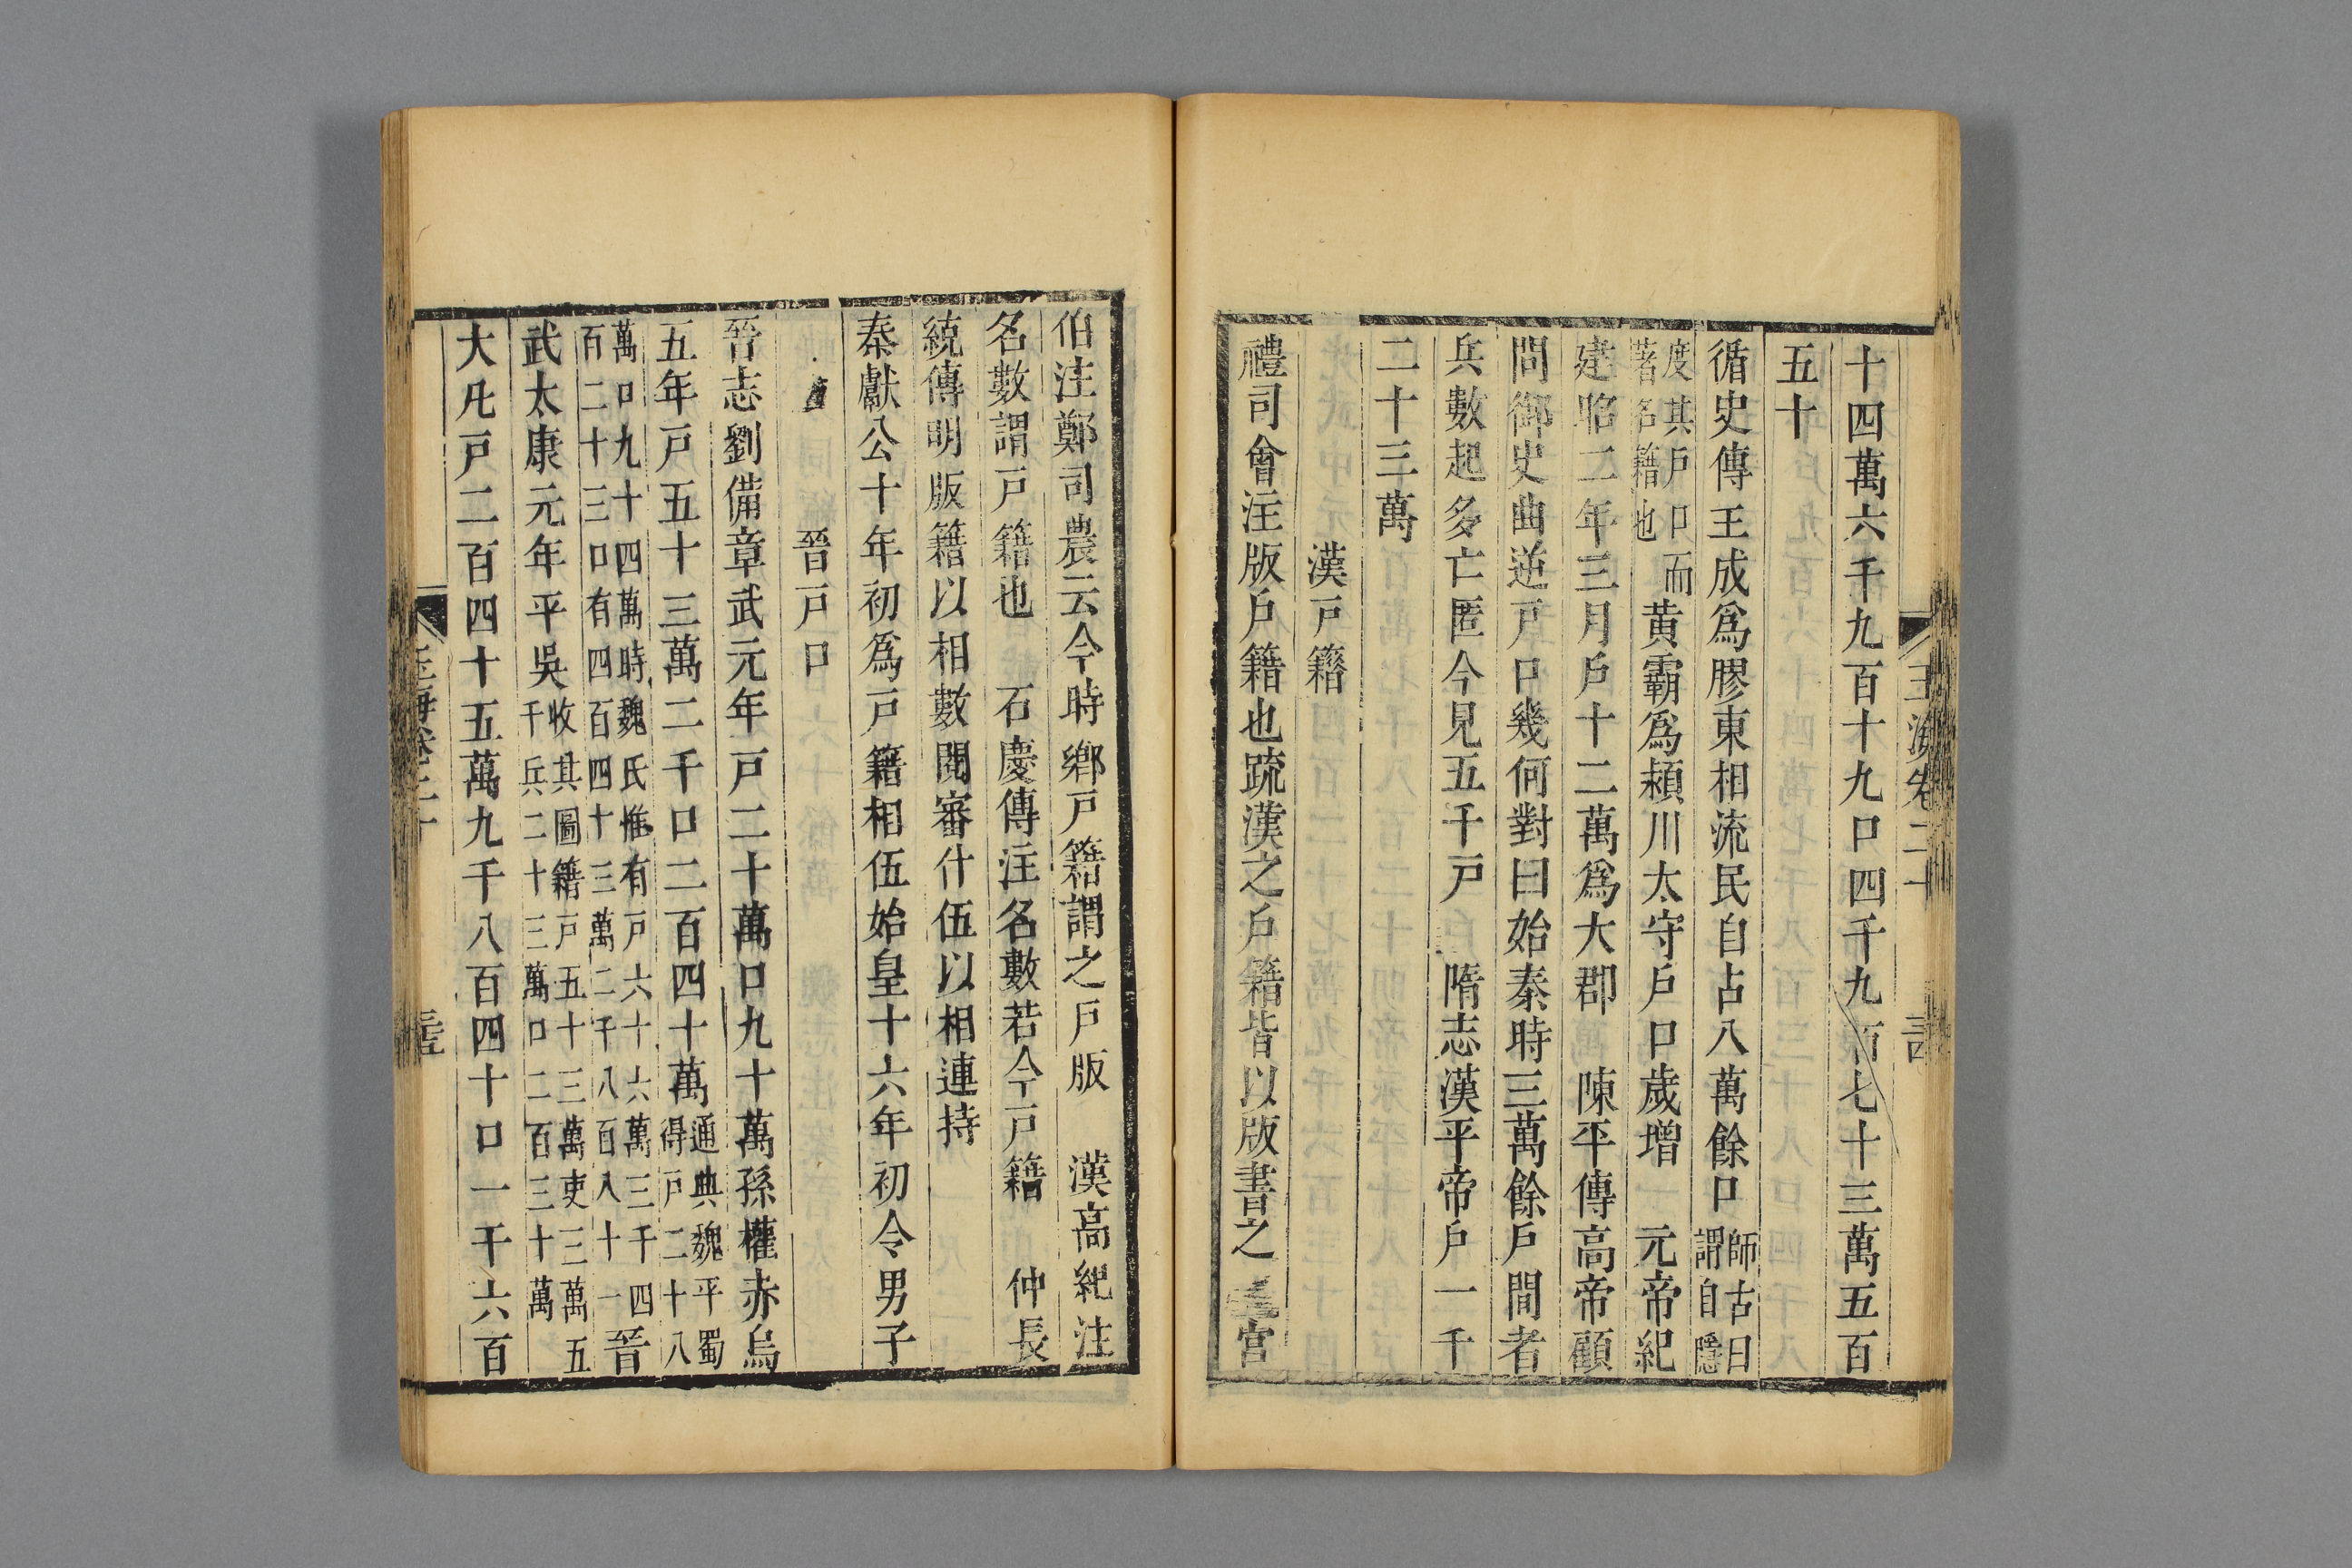 十四萬六千九百十九口四千九百七十三萬五百
五十
循史傳王成爲膠東相流民自占八萬餘口師古曰謂自隱
度其戶口而著名籍也黃霸爲潁川太守戶口歲增 元帝紀
建昭二年三月戶十二萬爲大郡 陳平傳高帝顧
問御史曲逆戶口幾何對曰始秦時三萬餘戶間者
兵數起多亡匿今見五千戶 隋志漢平帝戶一千
二十三萬
漢戶籍
禮司會注版戶籍也疏漢之戶籍皆以版書之 宮
伯注鄭司農云今時鄉戶籍謂之戶版 漢高紀注
名數謂戶籍也 石慶傳注名數若今戶籍 仲長
統傳明版籍以相數閱審什伍以相連持
秦獻公十年初爲戶籍相伍始皇十六年初令男子
晉戶口
晉志劉備章武元年戶二十萬口九十萬孫權赤烏
五年戶五十三萬二千口二百四十萬通典魏平蜀得戶二十八
萬口九十四萬時魏氏惟有戶六十六萬三千四百二十三口有四百四十三萬二千八百八十一晉
武太康元年平吳收其圖籍戶五十三萬吏三萬五千兵二十三萬口二百三十萬
大凡戶二百四十五萬九千八百四十口一千六百